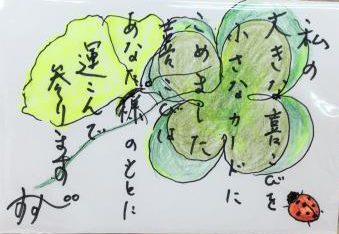 私の
大きな喜こびを
小さなカードに
こめました
喜こびは
あなた様のもとに
運こんで
参ります